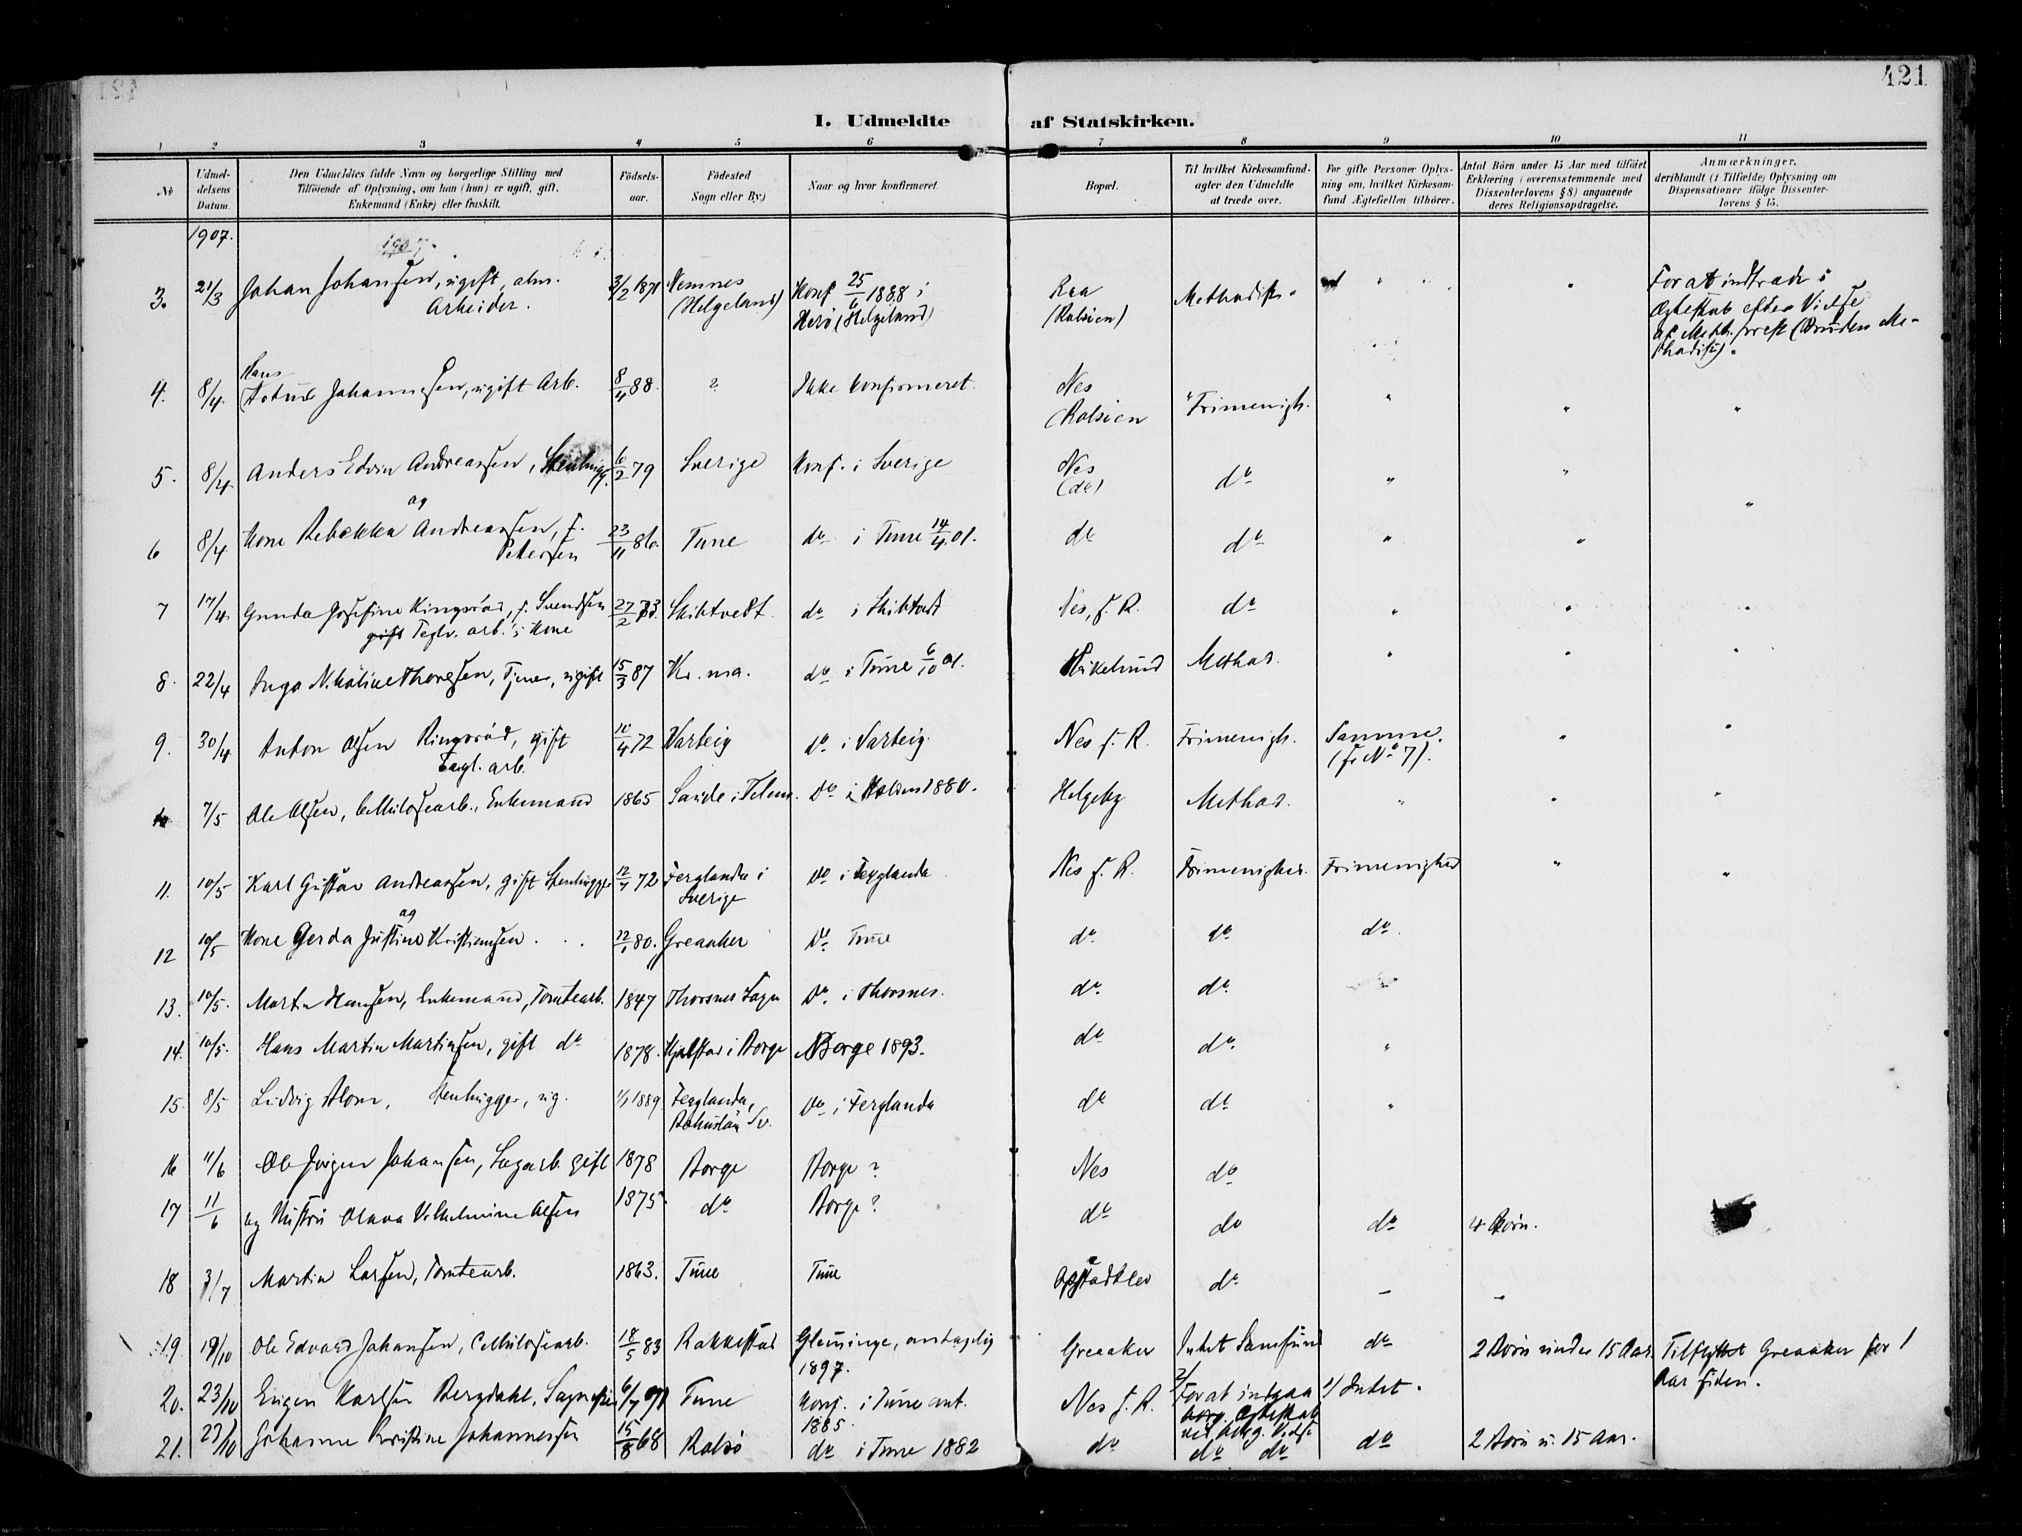 421
I. Udmeldte af Statskirken.
1 2 3 4 5 6 7 8 9 10 11
No
Udmeldelsens Datum.
Den Udmeldtes fulde Navn og borgerlige Stilling med
Tilföiende af Oplysning, om han (hun) er ugift, gift,
Enkemand (Enke) eller fraskilt.
Födselsaar.
Födested
Sogn eller By.)
Naar og hvor konfirmeret.
Bopæl.
Til hvilket Kirkesamfund-
agter den Udmeldte
at træde over.
For gifte Personer Oplys-
ning om, hvilket Kirkesam-
fund Ægtefællen tilhörer.
Antal Börn under 15 Aar med tilföiet
Erklæring (overensstemmende med
Dissenterlovens § 8) angaaende
deres Religionsopdragelse.
Anmærkninger,
deriblandt (i Tilfælde) Oplysning om
Dispensationer ifölge Dissenter-
lovens § 15.
1907.
3. 21/3 Johan Johansen, ugift, alm. Arbeider. 3/2 1871 Nemnes (Helgeland) Konf 25/6 1888 i Herø (Helgeland) Raa (Rolsøen) Methodist. " " For at indtræde i
Ægteskab efter Vielse
af Meth. prest (Bruden Me-
thodist).
4. 8/4. Hans Johannesen, ugift Arb. 8/4 88. ? Ikke konfirmeret. Nes (Rolsøen "Frimenigh. " " "
5. 8/4. Anders Edvin Andreassen, Stenhugg. 6/2 79 Sverige Konf. i Sverige Nes (do) do " "
og
6 8/4 Kone Rebekka Andreassen, f. Petersen 23/11 86. Tune do i Tune 14/4 01. do do " " "
7 17/4. Gunda Josefine Ringsrød, f. Svendsen gift Teglv. arb.'s Kone 27/2 73 Skibtvedt. do i Skibtvedt Nes, f. R. do " "
8. 22/4 Inga Nikoline Thoresen, Tjener, ugift 15/3 87 Kr. nia. do i Tune 6/10 01. Methad. " " "
9. 30/4 Anton Olsen Ringsrød, gift Tagl. arb. 11/4 72 Varteig do i Varteig. Nes f. R. Frimenigh. Samme. (fr No 7). " "
10 7/5 Ole Olsen, Cellulosearb., Enkemand 1865 Saude i Telem. do i Holden 1880. Helgeby Methad. " " "
11. 10/5 Karl Gustav Andreassen, gift Stenhugger 12/7 72 Ferglanda i Sverige do i Ferglanda Nes f. R. Frimenighed. Frimenighed " "
og
12 10/5 Kone Gerda Justine Kristiansen . . . 12/1 80. Greaaker do Tune do do. do.
13. 10/5. Martin Hansen, Enkemand, Tomtearb. 1847 Thorsnes Sogn do. i Thorsnes. do. do.
14. 10/5. Hans Martin Martinsen, gift do 1878. i Borge Borge 1893. do do. "
15. 8/5 Ludvig Blom, Stenhugger, ug. 1/1 1889. Ferglanda, Bohuslän Sv. do i Ferglanda do do "
16 11/6 Ole Jørgen Johansen, Sagarb. gift 1878 Borge Borge ? Nes do
17 11/6 og Hustru Olava Vilhelmine Olsen 1875. do Borge ? do do do 4 Børn.
18 3/7 Martin Larsen, Tomtearb. 1863. Tune Tune do. – –
19. 19/10 Ole Edvard Johansen, Cellulosearb. 18/5 83 Rakkestad Glemminge, antagelig 1897. Greaaker Intet Samfund do 2 Børn under 15 Aar. Tilflyttet Greaaker for 1
Aar siden.
20. 23/10 Eugen Karlsen Bergdahl, Tune Konf. i Tune ant. 1885. Nes f. R. 2/ For at indgaa borg. Ægteskab ved borg. Vielse 1/ Intet.
21. 23/10 Johanne Kristine Johannessen 15/8 68 Rolsø do i Tune 1882 do do do do 2 Børn u. 15 Aar.